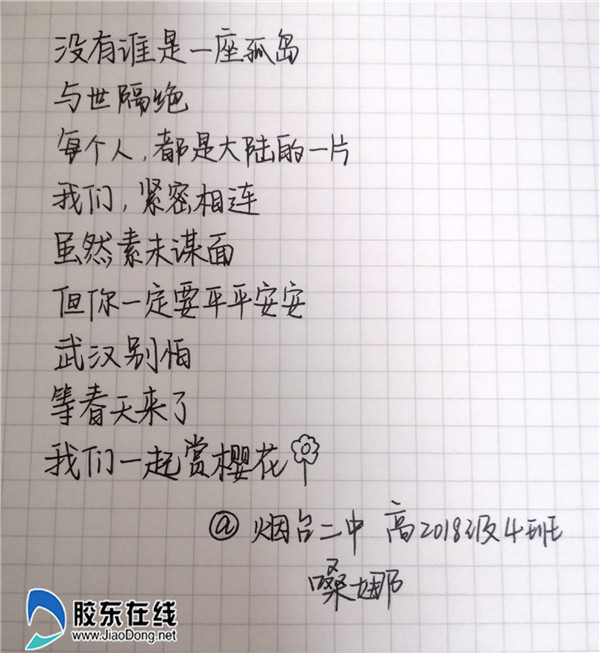 没有谁是一座孤岛
与世隔绝
每个人,都是大陆的一片
我们,紧密相连
虽然素未谋面
但你一定要平平安安
武汉别怕
等春天来了
我们一起赏樱花
@烟台二中 高2018级4班
嗓娜
胶东在线
www.JiaoDong.net